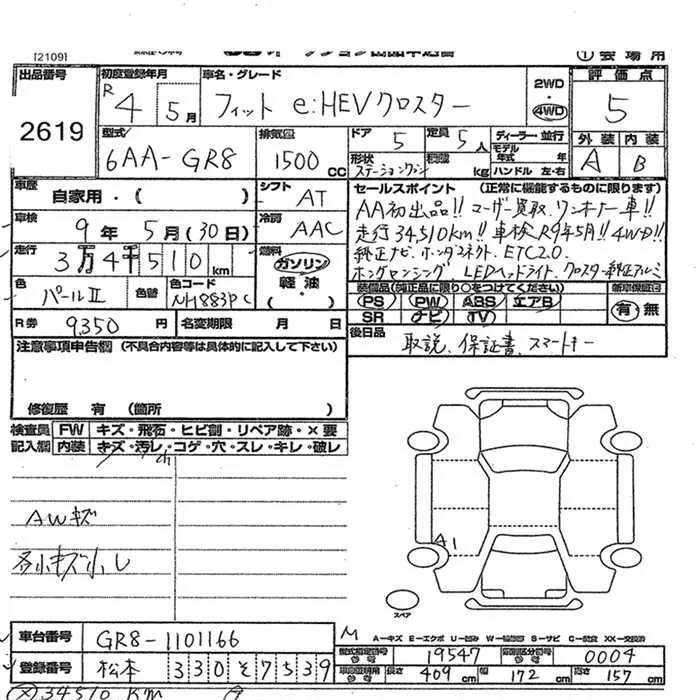 [2109]
① 会場用
出品番号 初度登録年月 車名・グレード 2WD 4WD 評価点
2619
R4年 5月 フィット e:HEVクロスター 5
型式 排気量 ドア 定員 ディーラー・並行 外装 内装
6AA-GR8 1500 CC 5 5人 モデル年式 年 A B
形状 ステーションワゴン 積載 kg ハンドル 左・右
車歴 自家用・( ) シフト AT セールスポイント (正常に機能するものに限ります)
車検 9年 5月(30日) 冷房 AAC
AA初出品!! ユーザー買取 ワンオーナー車!!
走行34,510km!! 車検R9年5月!! 4WD!!
純正ナビ、ホンダコネクト、ETC2.0
ホンダセンシング LEDヘッドライト、クロスター純正アルミ
走行 3万4千510km 燃料 ガソリン 軽油・
色 パールII 色替 色コード NH883PC
装備品(純正品に限り○をつけてください) 新車保証書
PS PW ABS エアB 有・無
SR ナビ TV
R券 9,350円 名変期限 月 日
後日品 取説、保証書、スマートキー
注意事項申告欄 (不具合内容等は具体的に記入して下さい)
修復歴 有 (箇所 )
検査員記入欄 FW キズ・飛石・ヒビ割・リペア跡・×要
内装 キズ・汚レ・コゲ・穴・スレ・キレ・破レ
AWキズ
各小キズ小凹
A1
スペア
車台番号 GR8-1101166
登録番号 松本 330 そ 7539
A-キズ E-エクボ U-凹み W-補修跡 S-サビ C-腐食 XX-交換済
型式指定番号 19547 類別区分番号 0004
長さ 409cm 幅 172cm 高さ 157cm
34510 KM